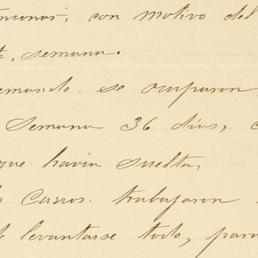 con motivo del
semana.
se ocuparon
Semana 36 dias,
que havia suelta,
Carros trabajaron
levantarse todo, para